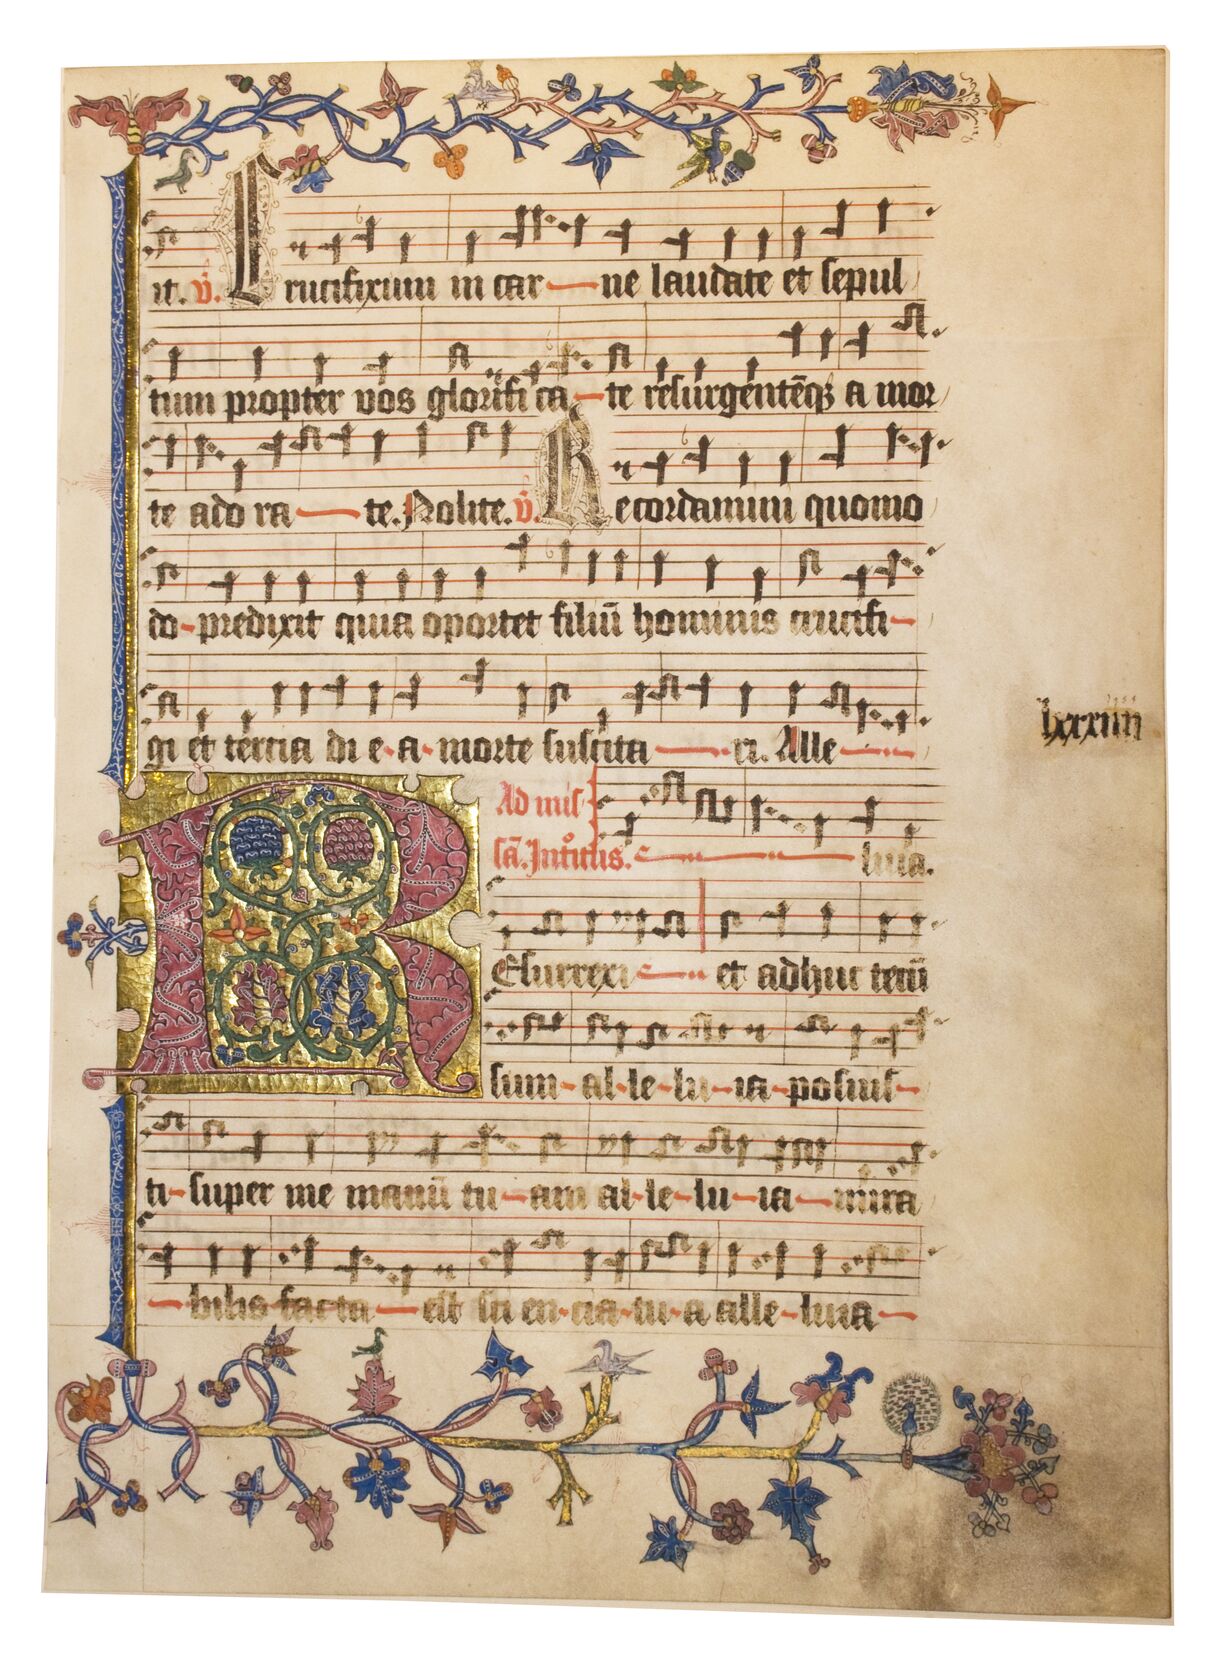 it. V̄. Crucifixum in car — ne laudate et sepul
tum propter vos glorifica — te resurgentēqꝫ a mor
te ado ra — te. Nolite. V̄. Recordamini quomo
do - predixit quia oportet filiū hominis crucifi -
gi et tercia di e - a - morte suscita — ri. Alle —
Ad mis
sā. Introitus. — luia.
REsurrexi — et adhuc tecū
sum - al - le - lu - ia - posuis -
ti - super me manū tu - am al - le - lu - ia — mira
— bilis facta — est sci en - cia - tu - a alle - luia —
lxxxiiii